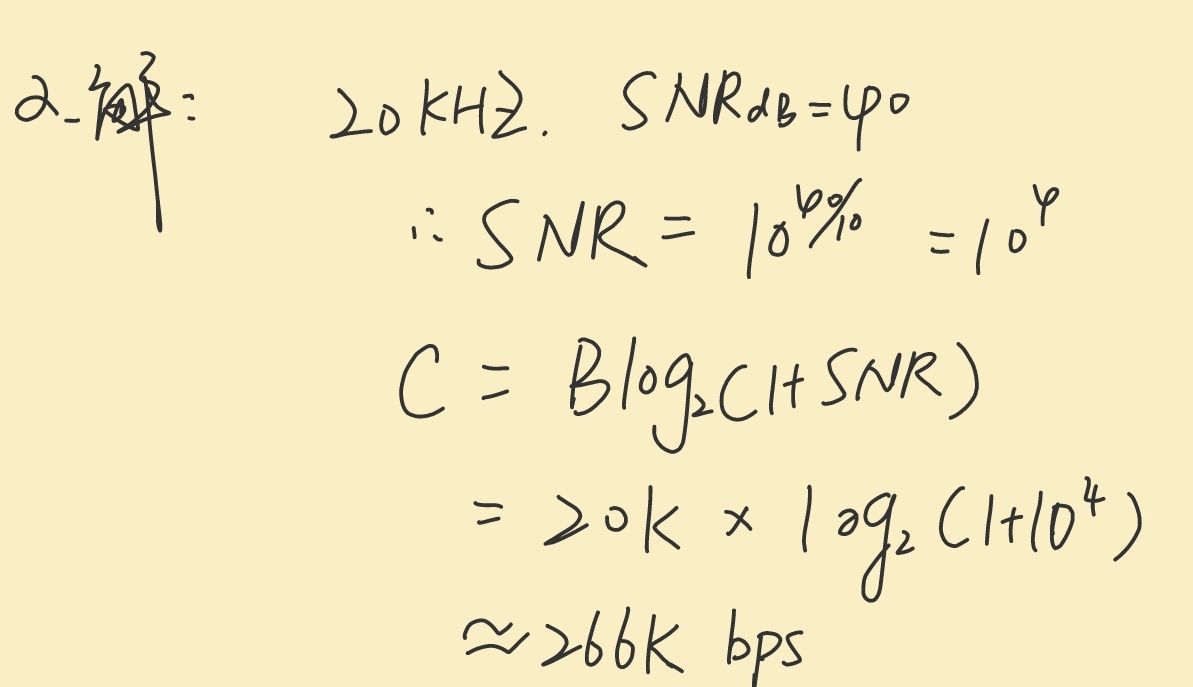 2. 解: 20KHZ. SNRdB=40
∴ SNR = 10^40/10 = 10^4
C = Blog₂(1+SNR)
= 20k × log₂(1+10^4)
≈266K bps